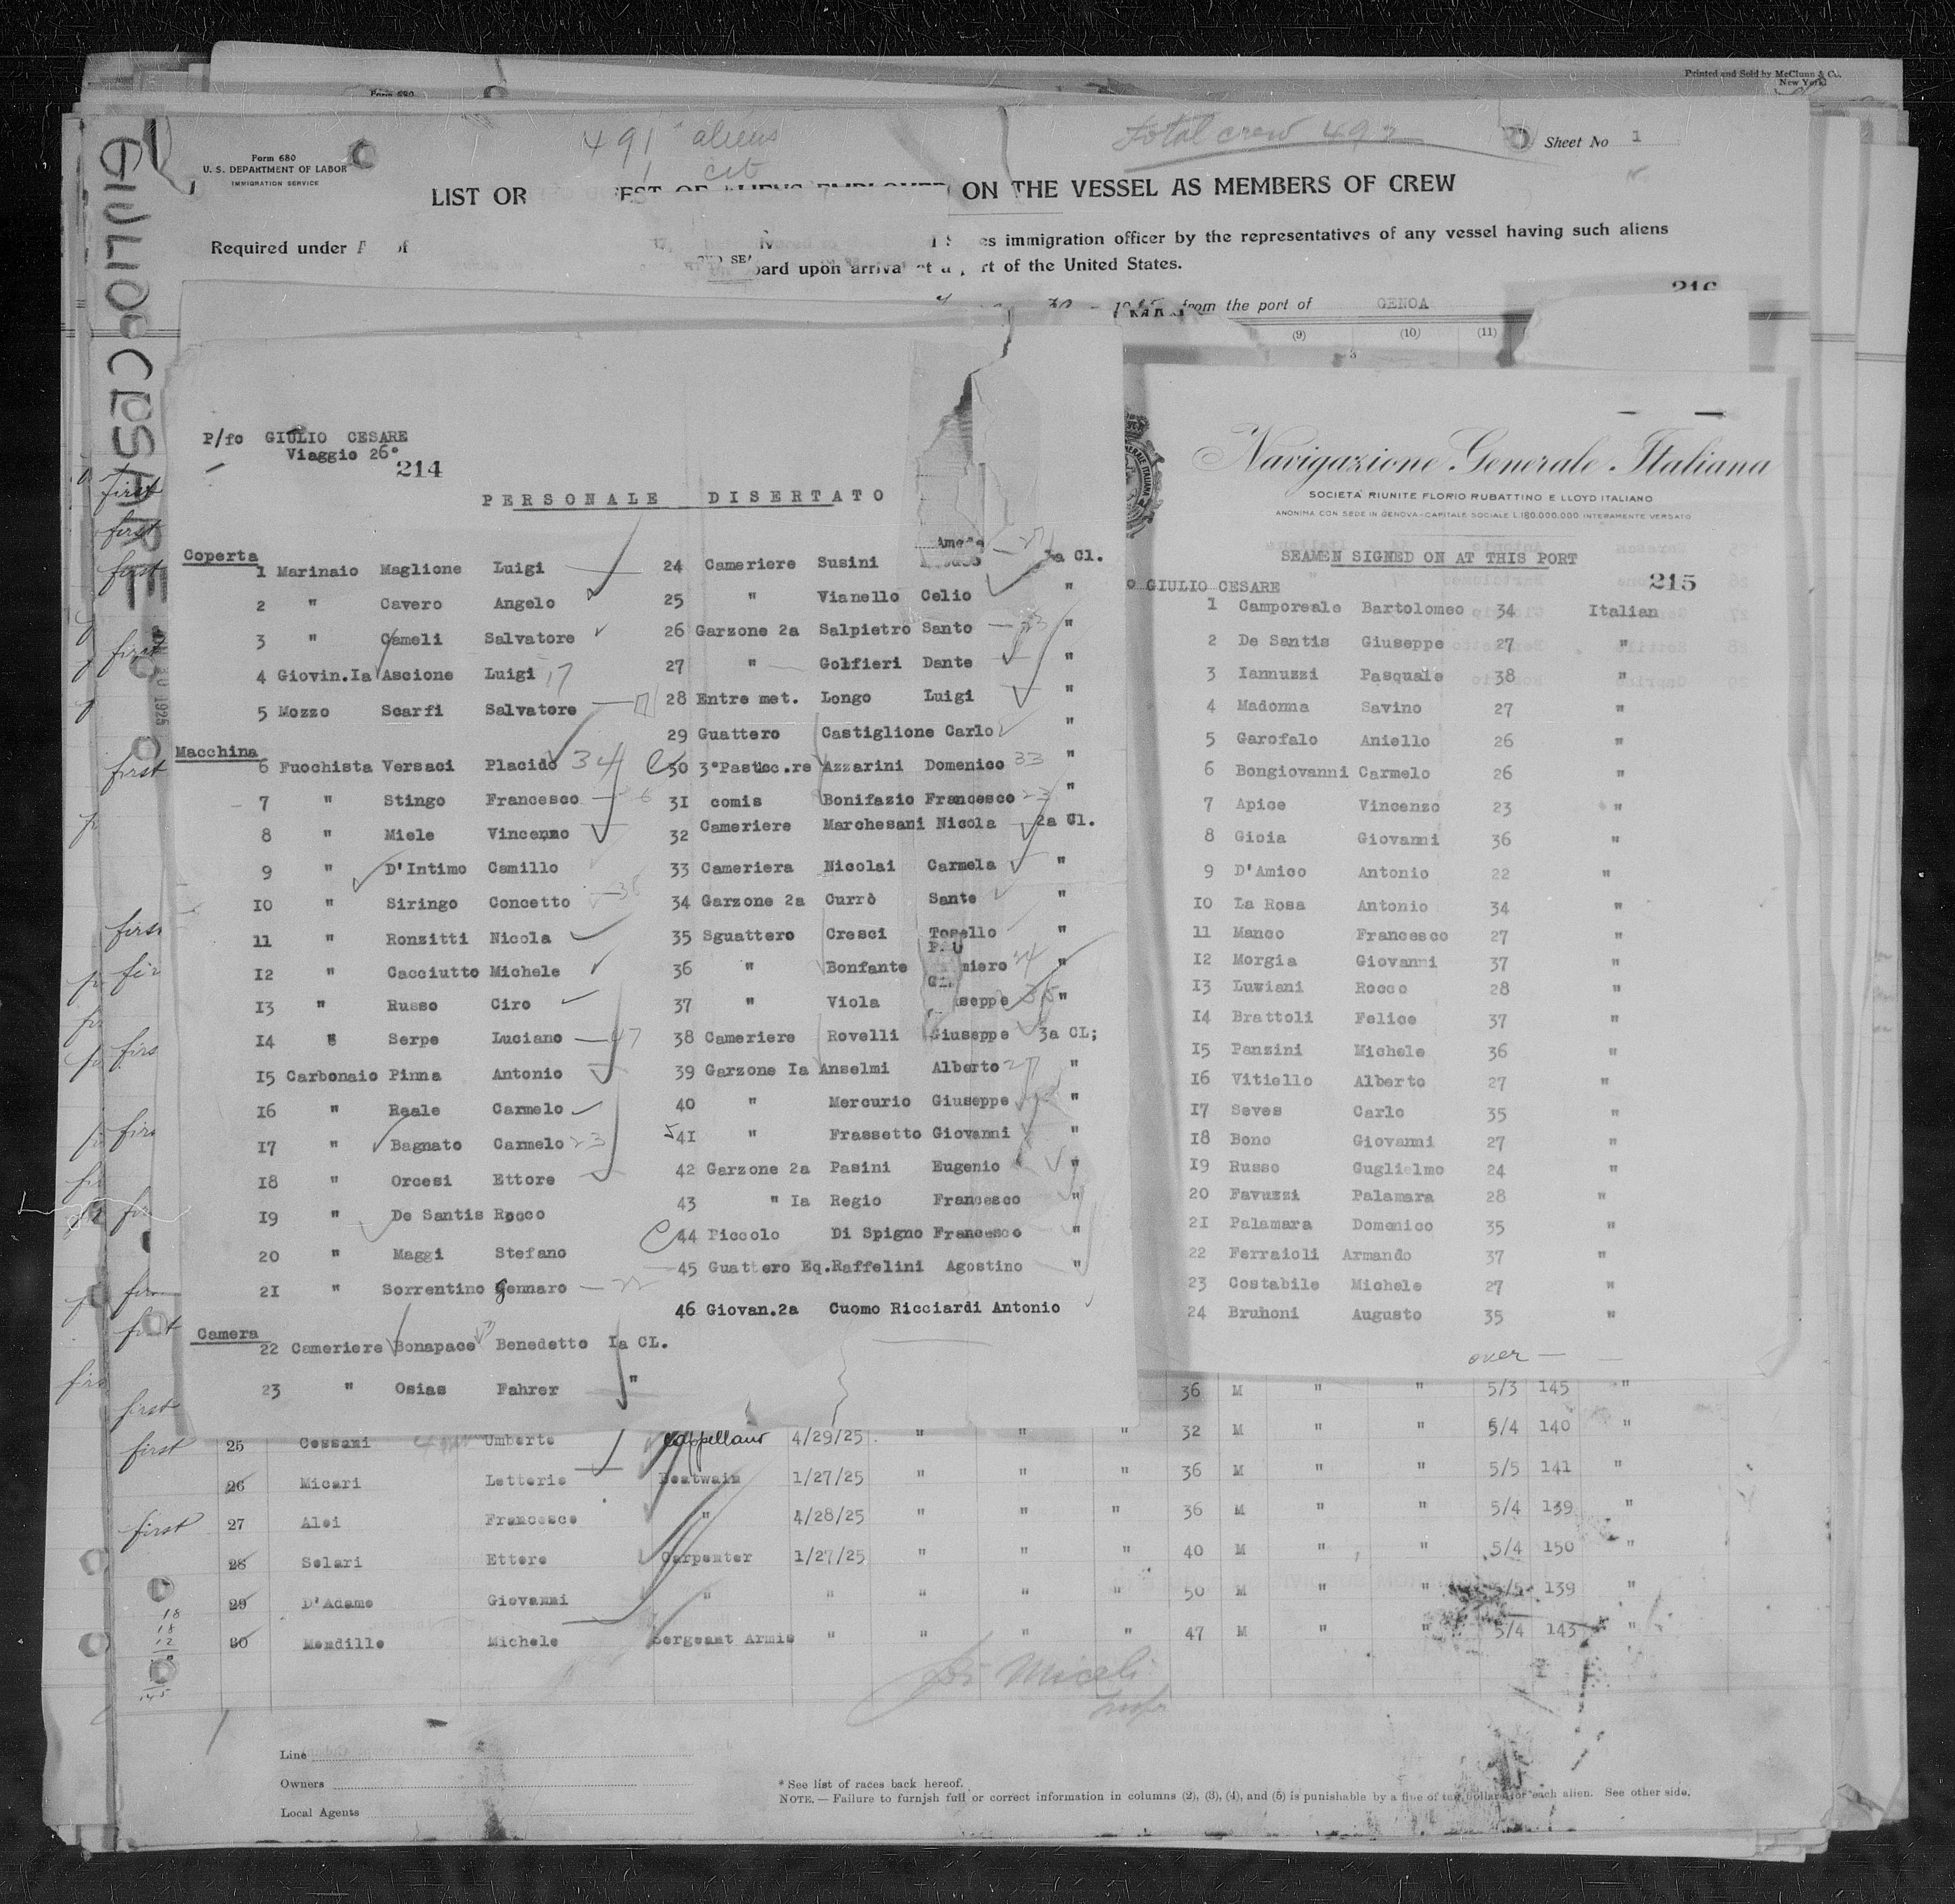 Printed and Sold by McClunn & Co.
New York
Form 680
491 aliens
cit
total crew 492
Sheet No 1
Form 680
U. S. DEPARTMENT OF LABOR
IMMIGRATION SERVICE
LIST OR EST OF ALIENS EMPLOYED ON THE VESSEL AS MEMBERS OF CREW
Required under
immigration officer by the representatives of any vessel having such aliens
oard upon arrival at a rt of the United States.
from the port of GENOA
(9) (10) (11)
3
GIULIO CESARE
P/fo GIULIO CESARE
Viaggio 26°
214
PERSONALE DISERTATO
Coperta
1 Marinaio Maglione Luigi
2 " Cavero Angelo
3 " Cameli Salvatore
4 Giovin.Ia Ascione Luigi 17
5 Mozzo Scarfi Salvatore
Macchina
6 Fuochista Versaci Placido 34
7 " Stingo Francesco
8 " Miele Vincenzo
9 " D'Intimo Camillo
10 " Siringo Concetto
11 " Ronzitti Nicola
12 " Cacciutto Michele
13 " Russo Ciro
14 " Serpe Luciano 47
15 Carbonaio Pinna Antonio
16 " Reale Carmelo
17 " Bagnato Carmelo 23
18 " Orcesi Ettore
19 " De Santis Rocco
20 " Maggi Stefano
21 " Sorrentino Gennaro
Camera
22 Cameriere Bonapace Benedetto Ia CL.
23 " Osias Fahrer "
24 Cameriere Susini 3a Cl.
25 " Vianello Celio "
26 Garzone 2a Salpietro Santo "
27 " Golfieri Dante "
28 Entre met. Longo Luigi "
29 Guattero Castiglione Carlo "
30 3°Pastic.re Azzarini Domenico 33 "
31 comis Bonifazio Francesco 23 "
32 Cameriere Marchesani Nicola 2a Cl.
33 Cameriera Nicolai Carmela "
34 Garzone 2a Currò Sante "
35 Sguattero Cresci Tosello "
36 " Bonfante "
37 " Viola "
38 Cameriere Rovelli Giuseppe 3a CL;
39 Garzone Ia Anselmi Alberto "
40 " Mercurio Giuseppe "
41 " Frassetto Giovanni "
42 Garzone 2a Pasini Eugenio "
43 " Ia Regio Francesco "
44 Piccolo Di Spigno Francesco "
45 Guattero Eq.Raffelini Agostino "
46 Giovan.2a Cuomo Ricciardi Antonio
Navigazione Generale Italiana
SOCIETÀ RIUNITE FLORIO RUBATTINO E LLOYD ITALIANO
ANONIMA CON SEDE IN GENOVA-CAPITALE SOCIALE L.180.000.000 INTERAMENTE VERSATO
SEAMEN SIGNED ON AT THIS PORT
o GIULIO CESARE
215
1 Camporeale Bartolomeo 34 Italian
2 De Santis Giuseppe 27 "
3 Iannuzzi Pasquale 38 "
4 Madonna Savino 27 "
5 Garofalo Aniello 26 "
6 Bongiovanni Carmelo 26 "
7 Apice Vincenzo 23 "
8 Gioia Giovanni 36 "
9 D'Amico Antonio 22 "
10 La Rosa Antonio 34 "
11 Manco Francesco 27 "
12 Morgia Giovanni 37 "
13 Luwiani Rocco 28 "
14 Brattoli Felice 37 "
15 Panzini Michele 36 "
16 Vitiello Alberto 27 "
17 Seves Carlo 35 "
18 Bono Giovanni 27 "
19 Russo Guglielmo 24 "
20 Favuzzi Palamara 28 "
21 Palamara Domenico 35 "
22 Ferraioli Armando 37 "
23 Costabile Michele 27 "
24 Bruhoni Augusto 35 "
over —
36 M " " 5/3 145 "
first 25 Cessani Umberto Cappellano 4/29/25 " " " 32 M " " 5/4 140 "
26 Micari Letterio Boatwain 1/27/25 " " " 36 M " " 5/5 141 "
first 27 Alei Francesco " 4/28/25 " " " 36 M " " 5/4 139 "
28 Solari Ettore Carpenter 1/27/25 " " " 40 M " " 5/4 150 "
29 D'Adamo Giovanni " " " " " 50 M " " 5/5 139 "
30 Mendillo Michele Sergeant Armis " " " " 47 M " " 5/4 143 "
Line
Owners
Local Agents
* See list of races back hereof.
NOTE. — Failure to furnish full or correct information in columns (2), (3), (4), and (5) is punishable by a fine of ten dollars for each alien. See other side.